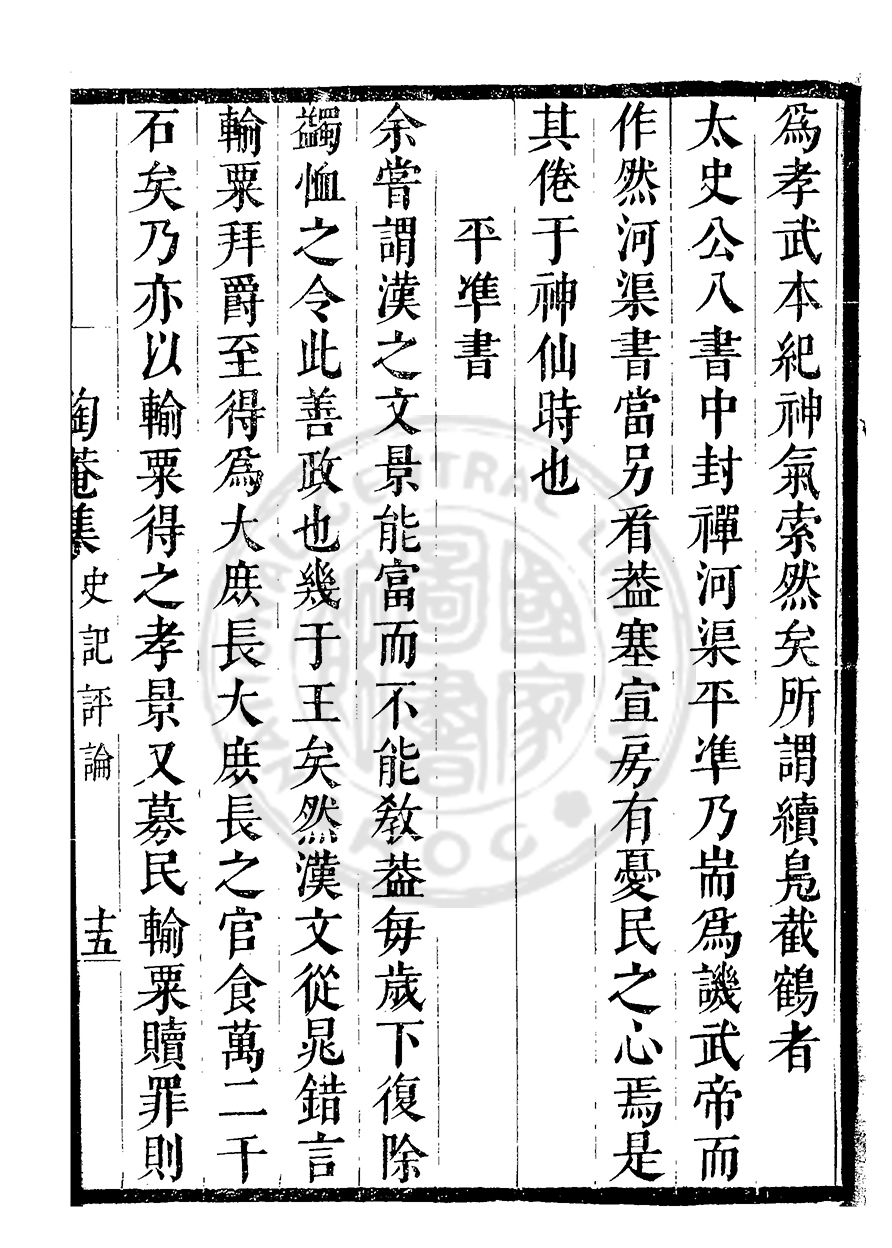 爲孝武本紀神氣索然矣所謂續鳧截鶴者
太史公八書中封禪河渠平凖乃耑爲譏武帝而
作然河渠書當另看葢塞宣房有憂民之心焉是
其倦于神仙時也
平凖書
余嘗謂漢之文景能富而不能敎葢每歲下復除
蠲恤之令此善政也幾于王矣然漢文從晁錯言
輸粟拜爵至得爲大庶長大庶長之官食萬二千
石矣乃亦以輸粟得之孝景又募民輸粟贖罪則
陶菴集 史記評論 十五
國家圖書館